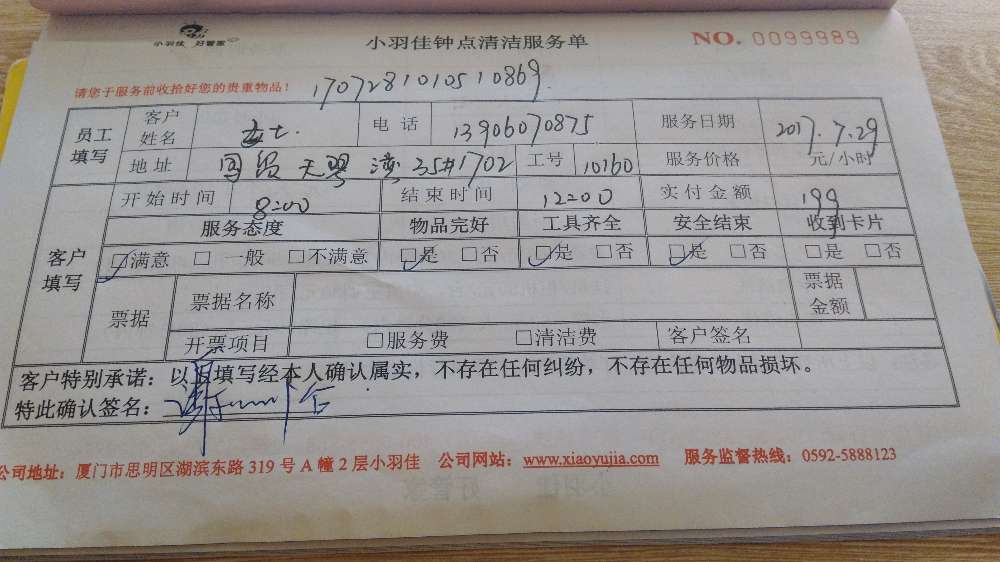 小羽佳 好管家
小羽佳钟点清洁服务单 NO. 0099989
请您于服务前收拾好您的贵重物品! 1707281010510869
员工填写 客户姓名 女士 电话 13906070875 服务日期 2017.7.29
地址 国贸天琴湾35#1702 工号 10160 服务价格 元/小时
客户填写 开始时间 8:00 结束时间 12:00 实付金额 199
服务态度 物品完好 工具齐全 安全结束 收到卡片
☑满意 □一般 □不满意 ☑是 □否 ☑是 □否 ☑是 □否 □是 □否
票据 票据名称 票据金额
开票项目 □服务费 □清洁费 客户签名
客户特别承诺:以上填写经本人确认属实,不存在任何纠纷,不存在任何物品损坏。
特此确认签名:
公司地址:厦门市思明区湖滨东路 319 号 A 幢 2 层小羽佳 公司网站:www.xiaoyujia.com 服务监督热线:0592-5888123